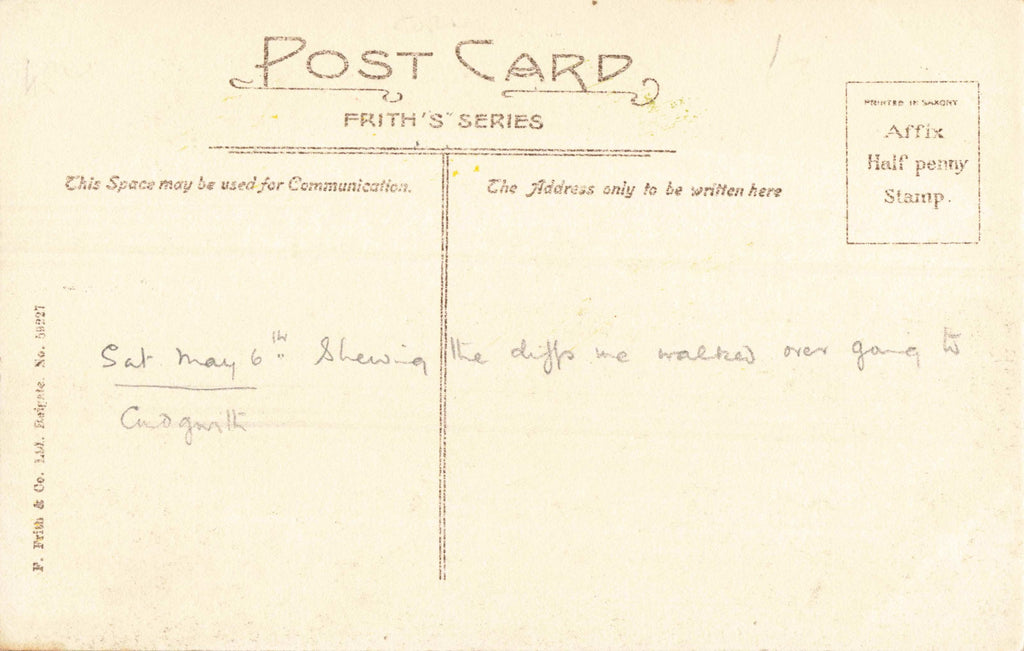 POST CARD
FRITH'S SERIES
This Space may be used for Communication.
The Address only to be written here
PRINTED IN SAXONY
Affix
Half penny
Stamp.
Sat May 6th Shewing the cliffs we walked over going to
Cadgwith
F. Frith & Co. Ltd. Reigate. No. 59227